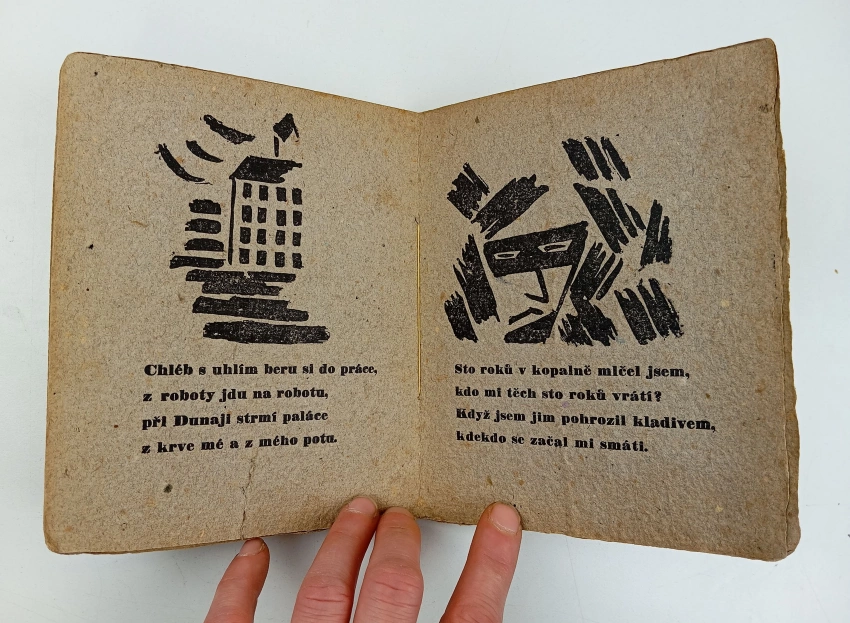 Chléb s uhlím beru si do práce,
z roboty jdu na robotu,
při Dunaji strmí paláce
z krve mé a z mého potu.
Sto roků v kopalně mlčel jsem,
kdo mi těch sto roků vrátí?
Když jsem jim pohrozil kladivem,
kdekdo se začal mi smáti.